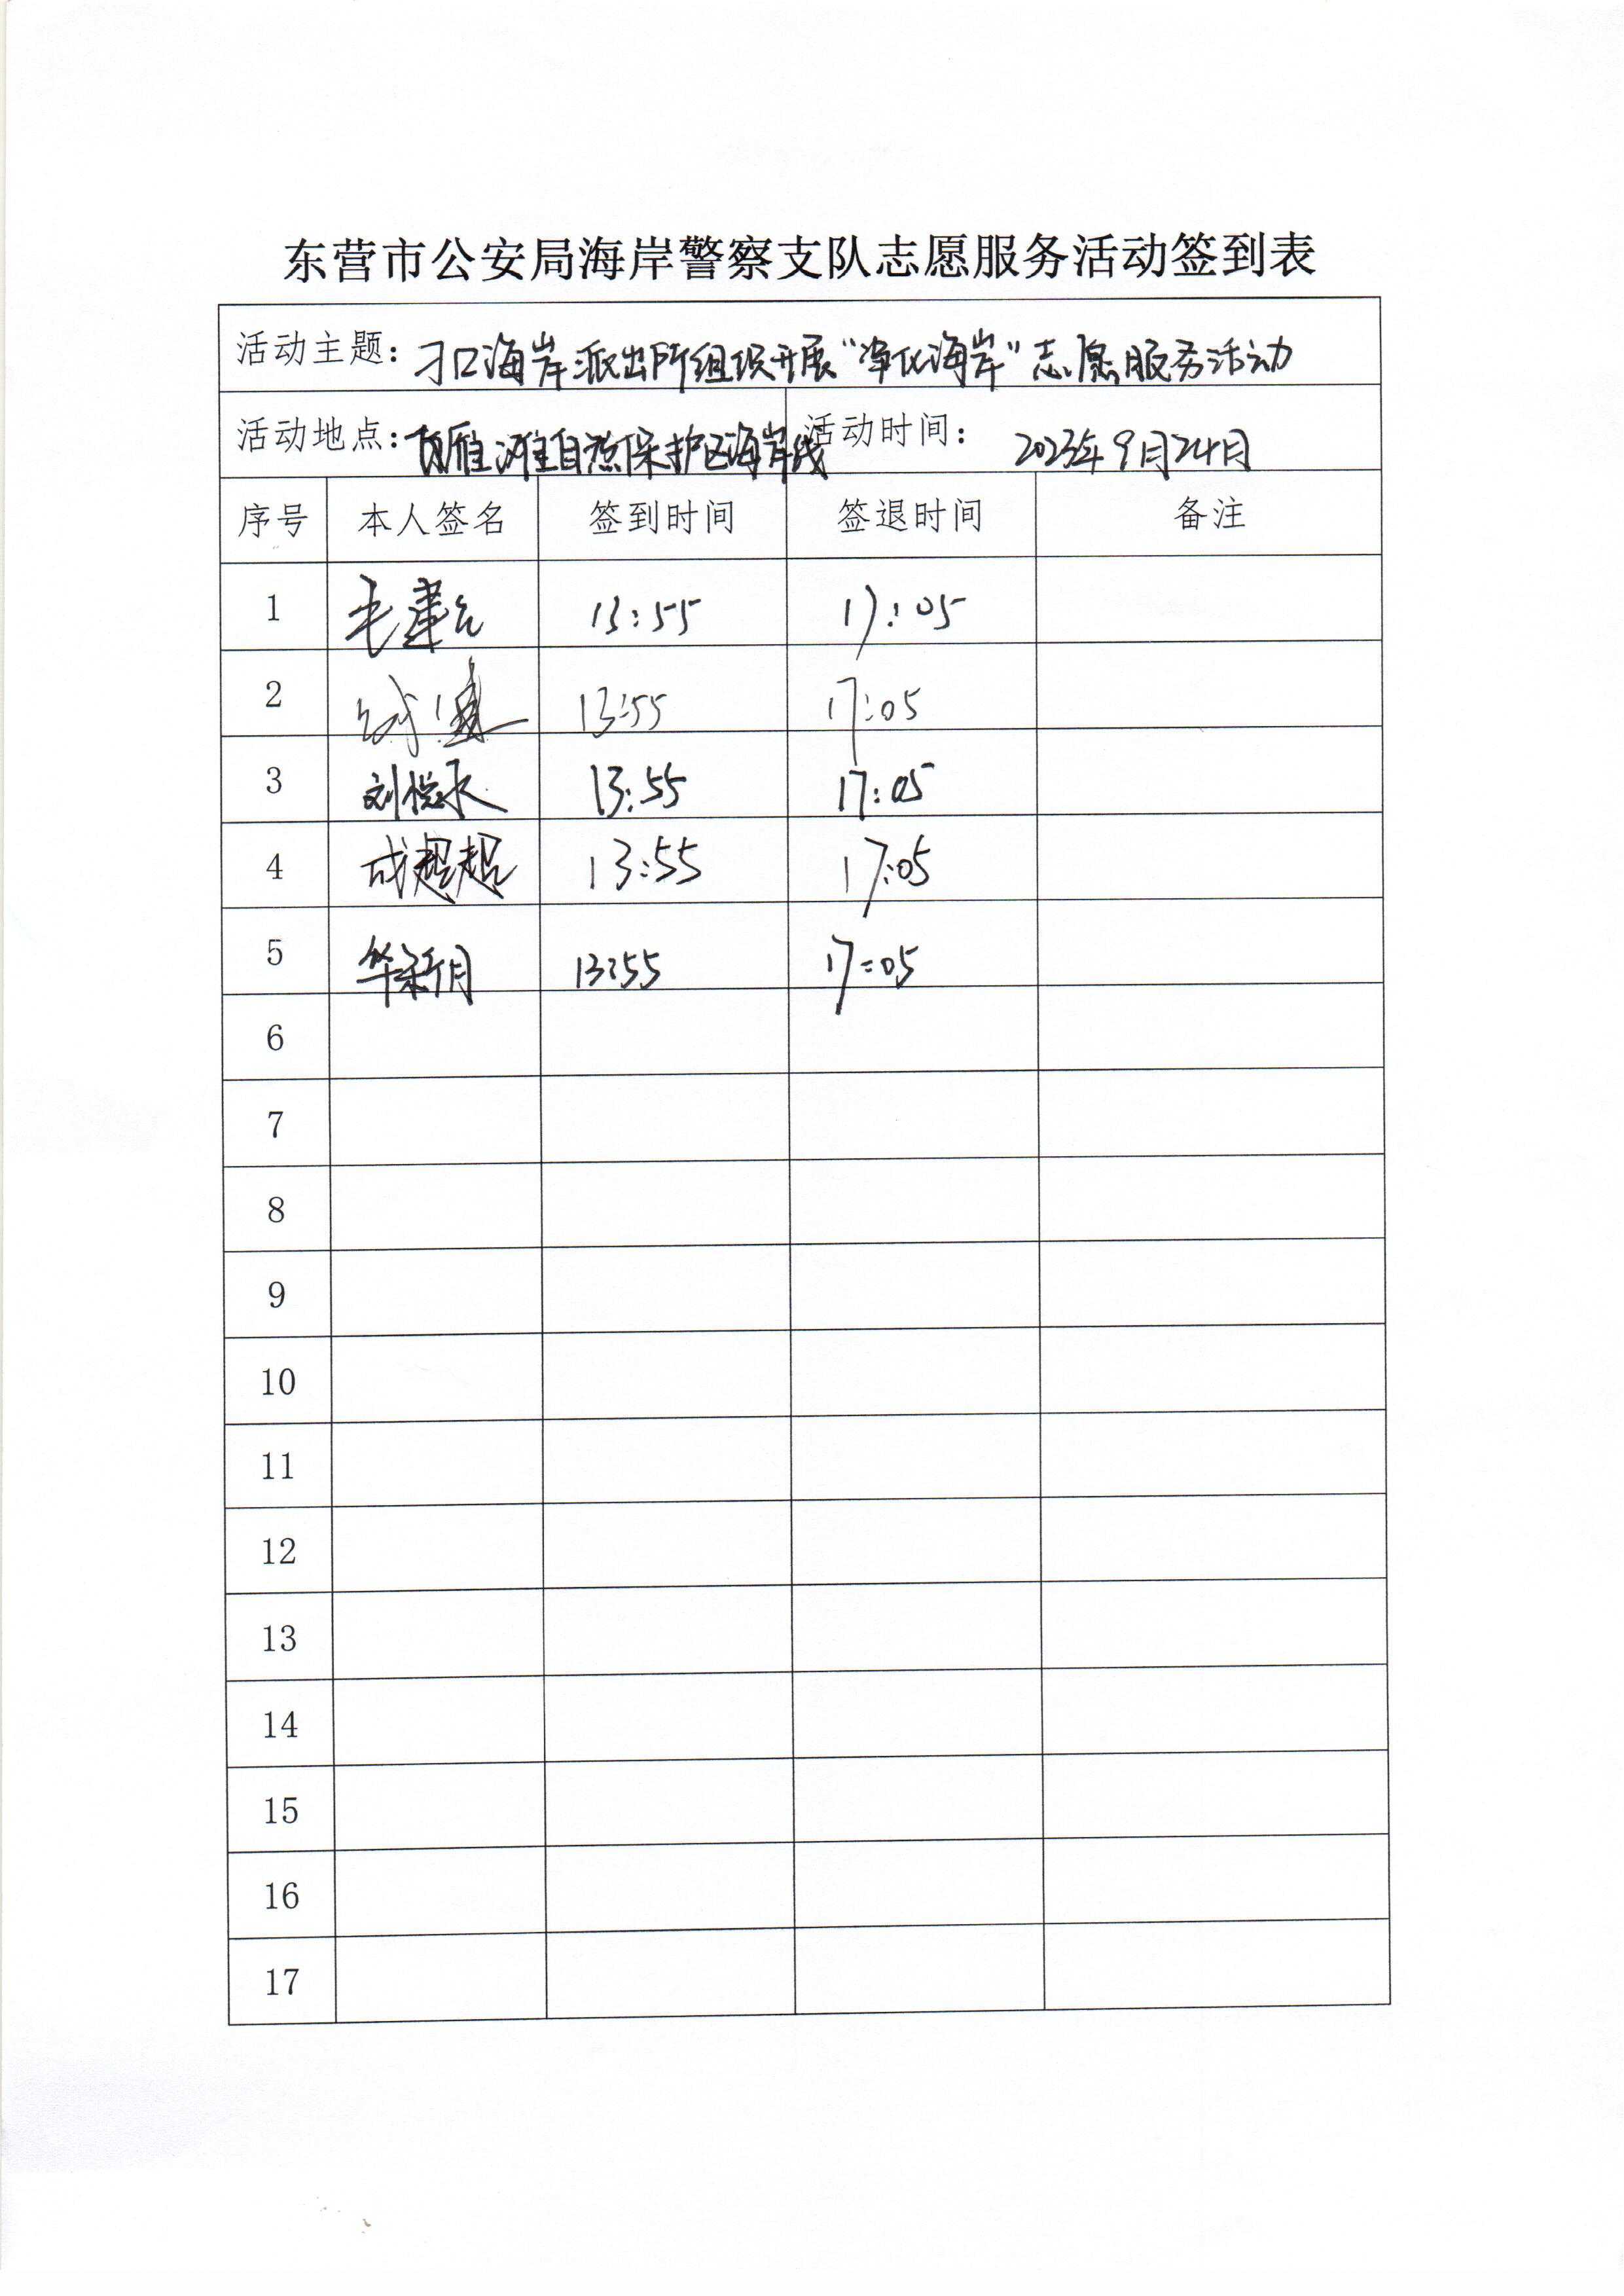 东营市公安局海岸警察支队志愿服务活动签到表
活动主题：刁口海岸派出所组织开展“净化海岸”志愿服务活动
活动地点：雁滩自然保护区海岸线 活动时间：2023年9月24日
序号 本人签名 签到时间 签退时间 备注
1 毛建 13:55 17:05
2 13:55 17:05
3 刘悦 13:55 17:05
4 成超超 13:55 17:05
5 华新月 13:55 17:05
6
7
8
9
10
11
12
13
14
15
16
17